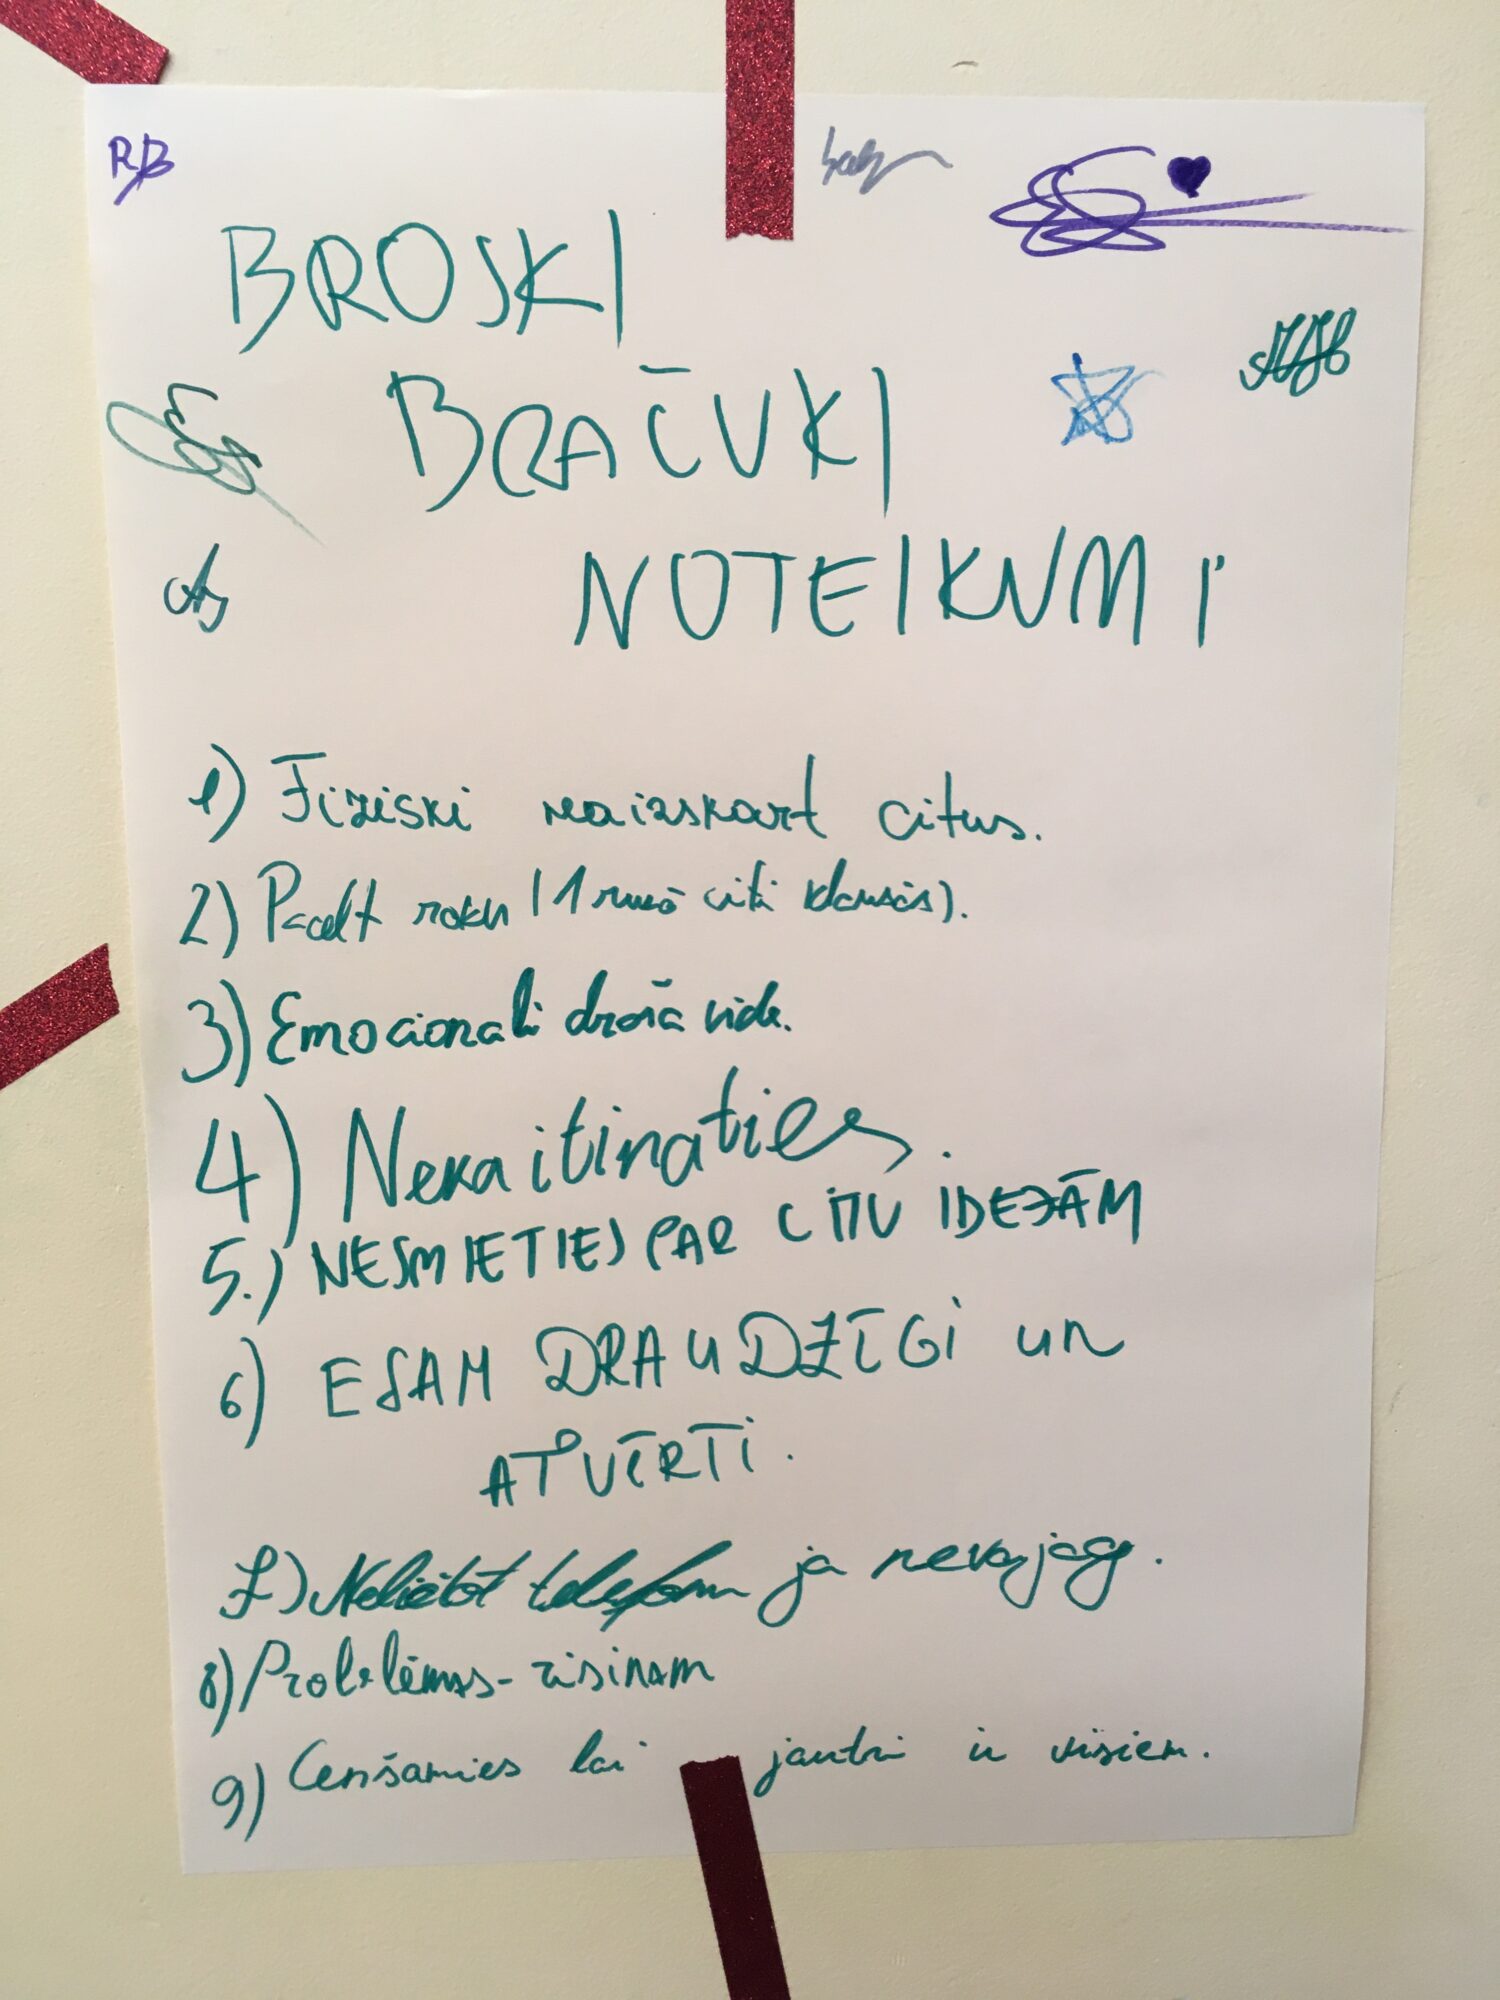 RB
BROSKI
BRAČUKI
NOTEIKUMI
1) Fiziski neaizskart citus.
2) Pacelt roku (1 runā citi klausās).
3) Emocionāli droša vide.
4) Nekaitinaties.
5.) NESMIETIES PAR CITU IDEJĀM
6) ESAM DRAUDZĪGI un
ATVĒRTI.
7.) Nelietot telefonu ja nevajag.
8) Problēmas-risinam
9) Cenšamies lai jautri ir visiem.